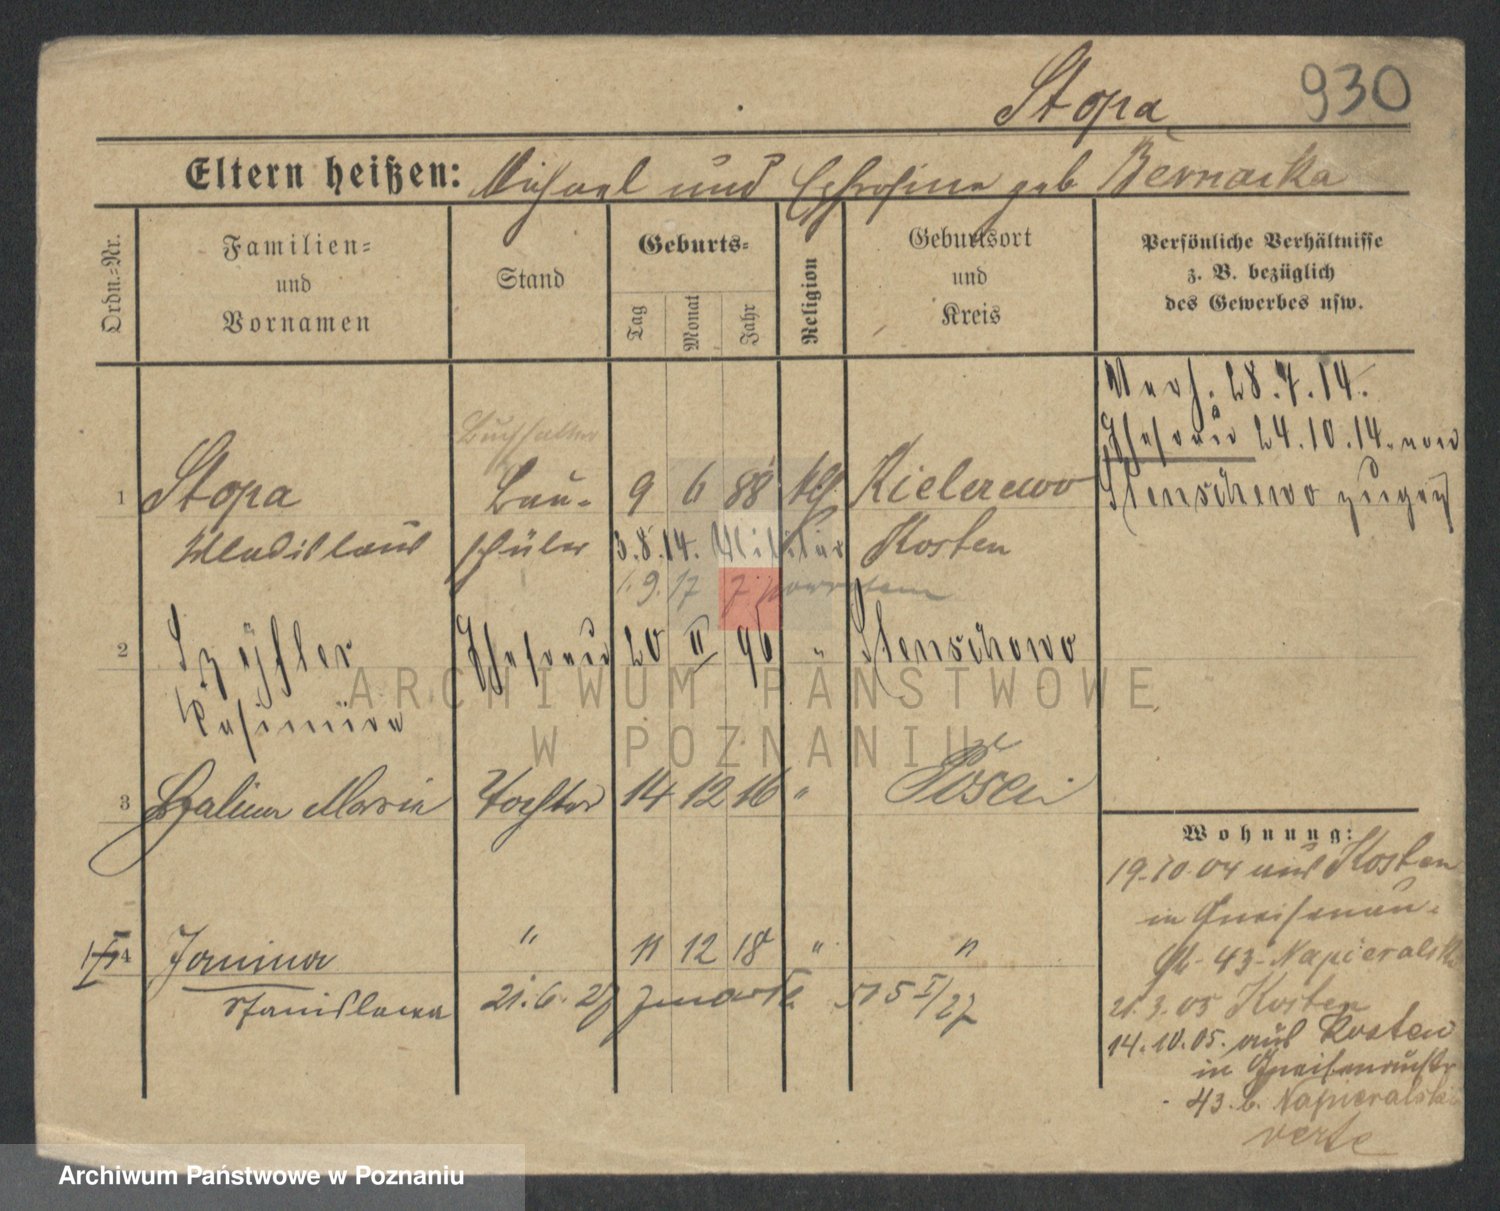 Stopa 930
Eltern heißen: Michael und Eyfrosina geb Bernacka
Ordn.=Nr.
Familien=
und
Vornamen
Stand
Geburts=
Tag Monat Jahr
Religion
Geburtsort
und
Kreis
Persönliche Verhältnisse
z. B. bezüglich
des Gewerbes usw.
Verh. 28.7.14.
Ehefrau 24.10.14. von
Stenschewo zugez
Buchhalter
1 Stopa Bau- 9 6 88 kth Kielczewo
Wladislaus schüler 3.8.14. Militär Kosten
1.9.17 z.
2 Szyfter Ehefrau 20 II 96 " Stenschewo
Kasimira
3 Halina Maria Tochter 14 12 16 " Posen
4 Janina " 11 12 18 " "
Stanisława 21.6.27 zmarła 5/I/27
Wohnung:
19.10.04 aus Kosten
in Gneisenau-
str. 43 - Napieralski
21.3.05 Kosten
14.10.05. aus Kosten
in Gneisenaustr
43. b. Napieralski
verte
ARCHIWUM PAŃSTWOWE
W POZNANIU
Archiwum Państwowe w Poznaniu